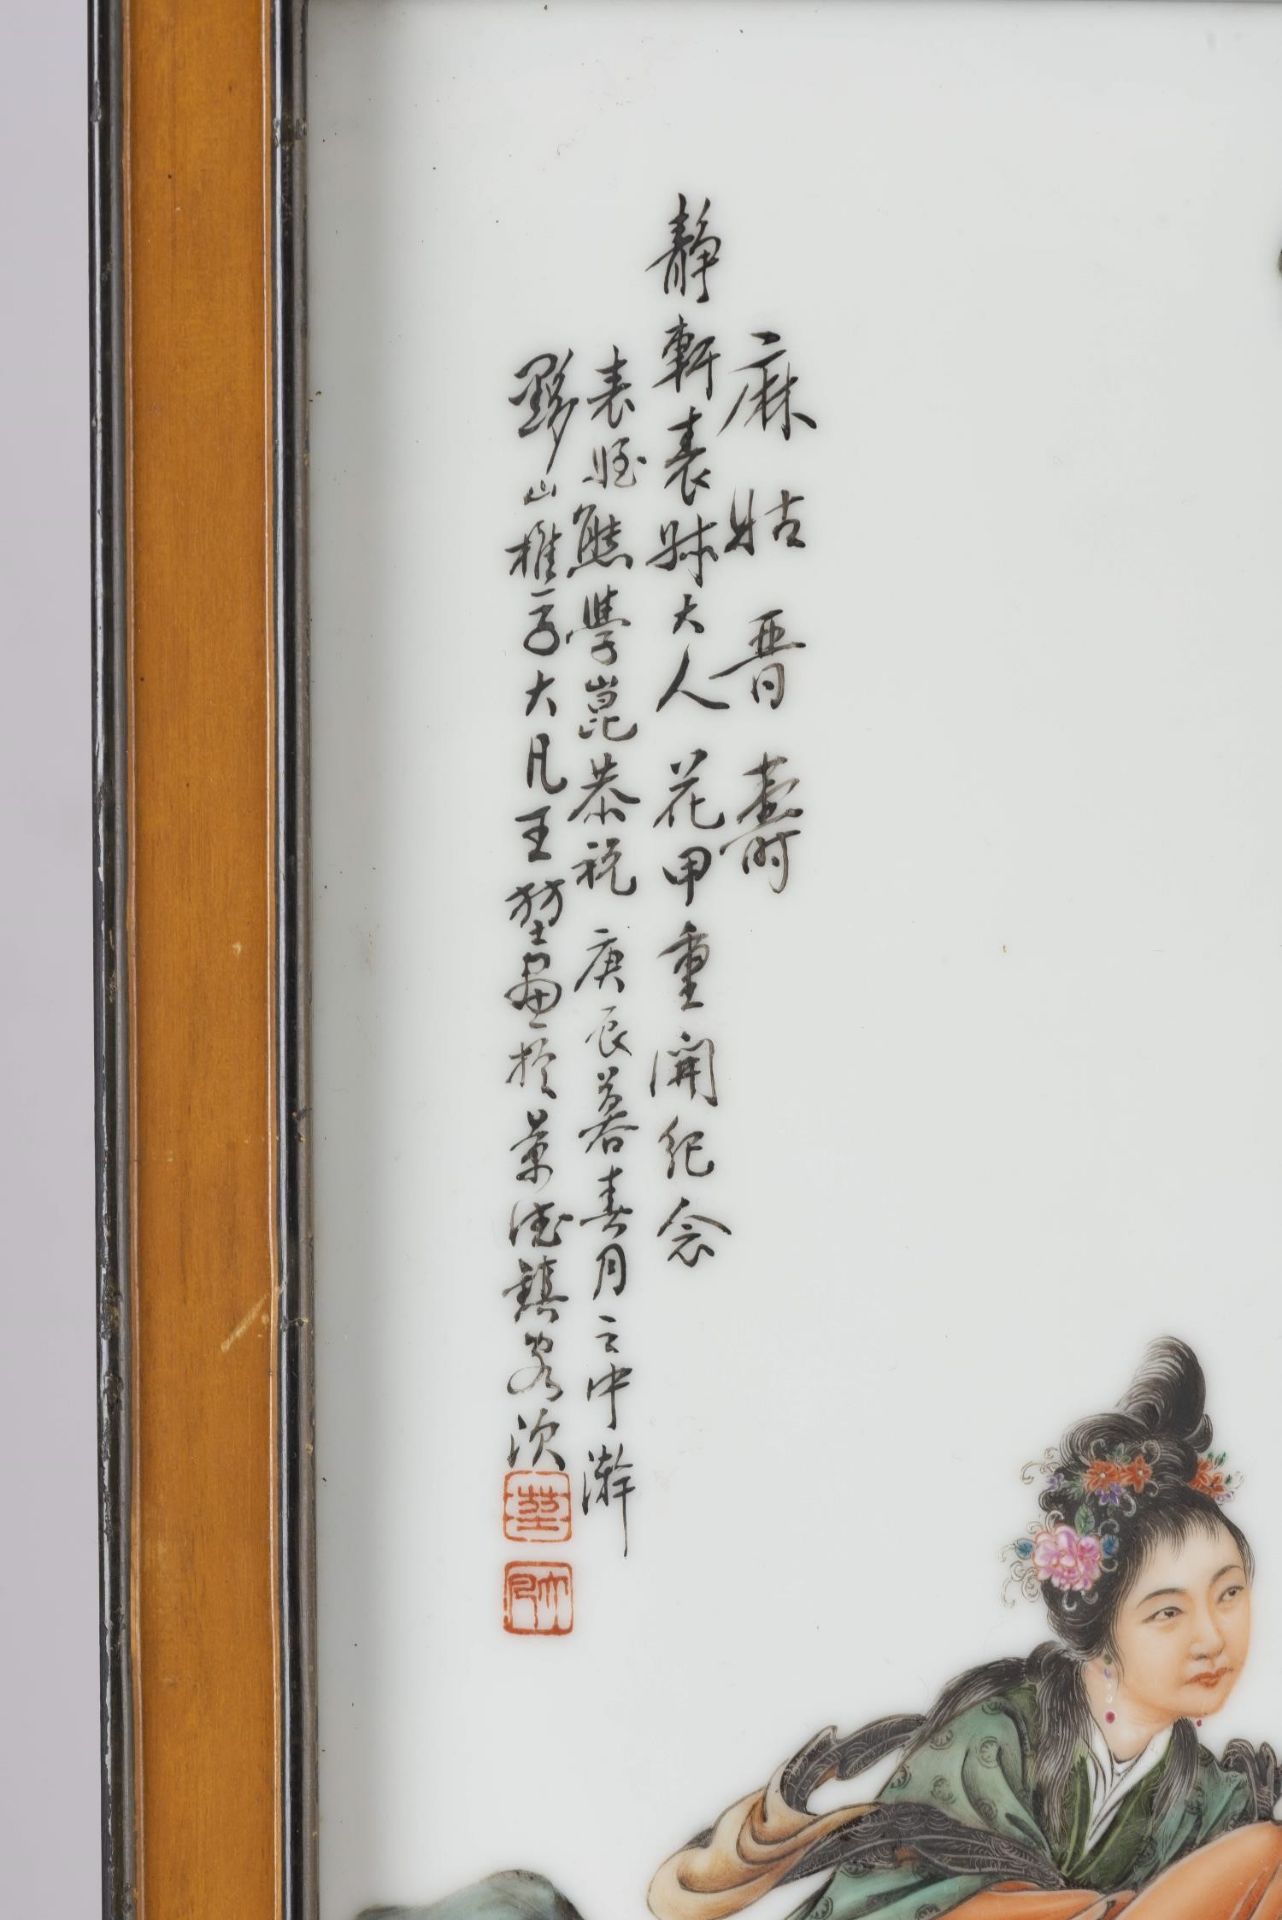 麻姑晋壽
静軒表姊大人花甲重開紀念
表姪熊學崑恭祝 庚辰暮春月之中澣
黟山樵子大凡王堃畫於景德鎮客次
堃